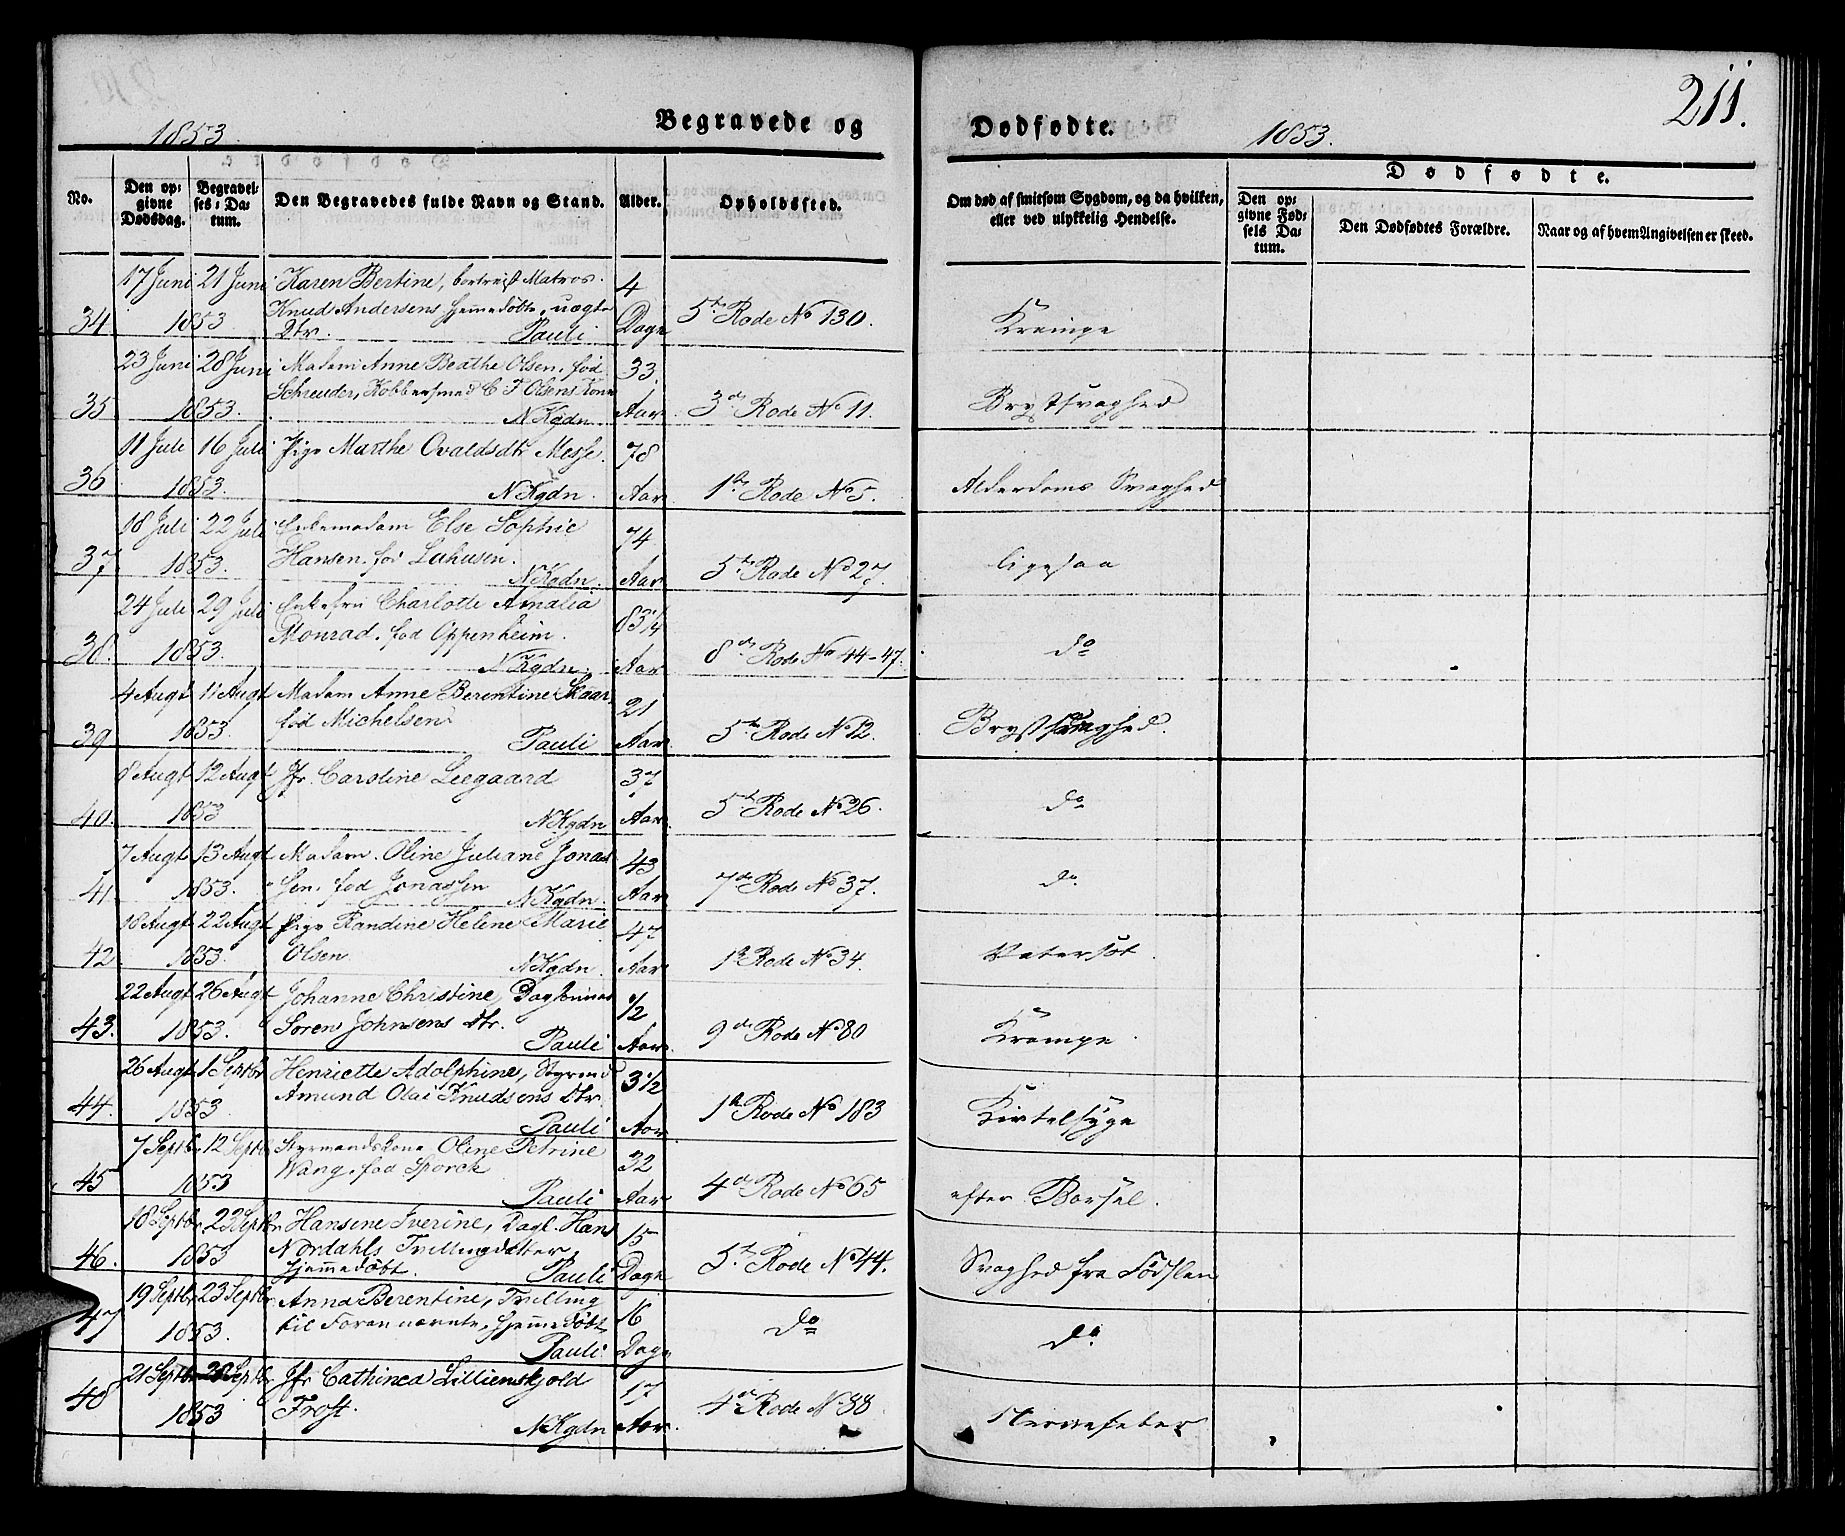 211.
1853.
Begravede og
Dødfødte.
1853.
No.
Den op-
givne
Dødsdag.
Begravel-
ses-Da-
tum.
Den Begravedes fulde Navn og Stand.
Alder.
Opholdssted.
Om død af smitsom Sygdom, og da hvilken,
eller ved ulykkelig Hendelse.
Dødfødte.
Den op-
givne Fød-
sels Da-
tum.
Den Dødfødtes Forældre.
Naar og af hvem Angivelsen er skeed.
17 Juni 21 Juni Karen Bertine, bortreist Matros 4
34 1853 Knud Andersens hjemmedøbte, uægte Dage 5te Rode No 130. Krampe
Dtr. Pauli
23 Juni 28 Juni Madam Anne Beathe Olsen, fød 33
35 1853. Schreuder, Kobbersmed C F Olsens Kone Aar 3de Rode No 11. Brystsvaghed
NKgdn
11 Juli 16 Juli Pige Marthe Ovaldsdtr Messe. 78
36 1853. NKgdn. Aar 1ste Rode No 5. Alderdoms Svaghed
18 Juli 22 Juli Enkemadam Else Sophie 74
37 1853. Hansen, fød Luhusen. Aar 5te Rode No 27. ligesaa
NKgdn.
24 Juli 29 Juli Enkefru Charlotte Amalia 83 1/4
38. 1853. Monrad, fød Oppenheim. Aar 8de Rode No 44-47. do
NKgdn.
4 Augt 11 Augt Madam Anne Berentine Skaar 21
39 1853. fød Michelsen Aar. 5te Rode No 12. Brystsvaghed.
Pauli
8 Augt 12 Augt Jfr. Caroline Leegaard 37
40. 1853 NKgdn Aar. 5te Rode No 26. do
7 Augt 13 Augt Madam Oline Juliane Jonas- 43
41. 1853. sen, fød Jonassen NKgdn. Aar 7de Rode No 37. do.
18 Augt 22 Augt Pige Randine Helene Marie 47
42. 1853. Olsen NKgdn. Aar 1ste Rode No 34. Vatersot.
22 Augt 26 Augt Johanne Christine, Daglønner 1/2
43. 1853. Søren Johnsens Dtr. Pauli Aar. 9de Rode No 80 Krampe.
26 Augt 1 Septbr Henriette Adolphine, Styrmd 3 1/2
44. 1853 Amund Olai Knudsens Dtr. Aar. 1ste Rode No 183 Kirtelsyge
Pauli
7 Septbr. 12 Septbr Styrmandskone Oline Petrine 32
45 1853 Wang, fød Sporck Aar 4de Rode No 65 efter Barsel.
Pauli
18 Septbr 22 Septbr Hansine Iverine, Dagl. Hans 15
46. 1853 Nordahls Tvillingdatter Dage 5te Rode No 44. Svaghed fra Fødslen
hjemmedøbt. Pauli
19 Septbr 23 Septbr Anna Berentine, Tvilling 16
47 1853. til Forannævnte, hjemmedøbt Dage do do
Pauli.
21 Septbr 28 Septbr Jfr Cathinca Lillienskjold 17
48 1853 Frost. NKgdn Aar. 4de Rode No 88. Nervefeber